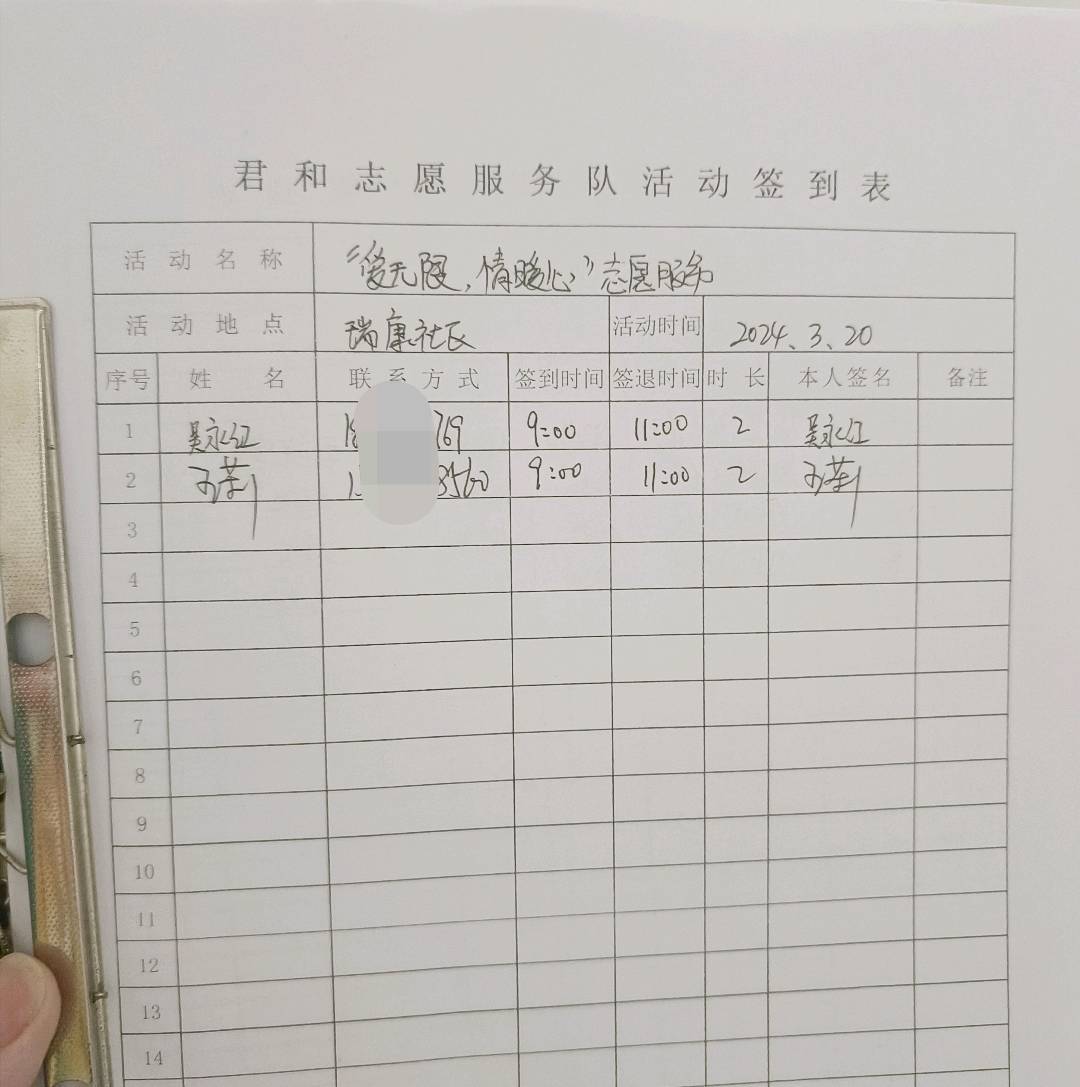 君和志愿服务队活动签到表
活动名称 “爱无限，情暖心”志愿服务
活动地点 瑞康社区 活动时间 2024.3.20
序号 姓名 联系方式 签到时间 签退时间 时长 本人签名 备注
1 吴永红 18 769 9:00 11:00 2 吴永红
2 1 8560 9:00 11:00 2
3
4
5
6
7
8
9
10
11
12
13
14